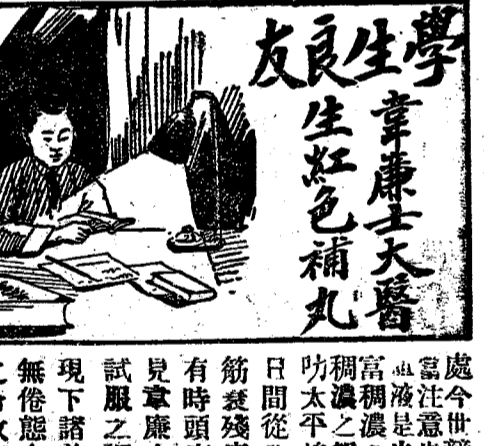 學生良友
韋廉士大醫
生紅色補丸
處今世
當注意
血液是
富稠濃
稠濃之
吻太平
日間從
筋衰殘
有時頭
見韋廉
試服之
現下諸
無倦態